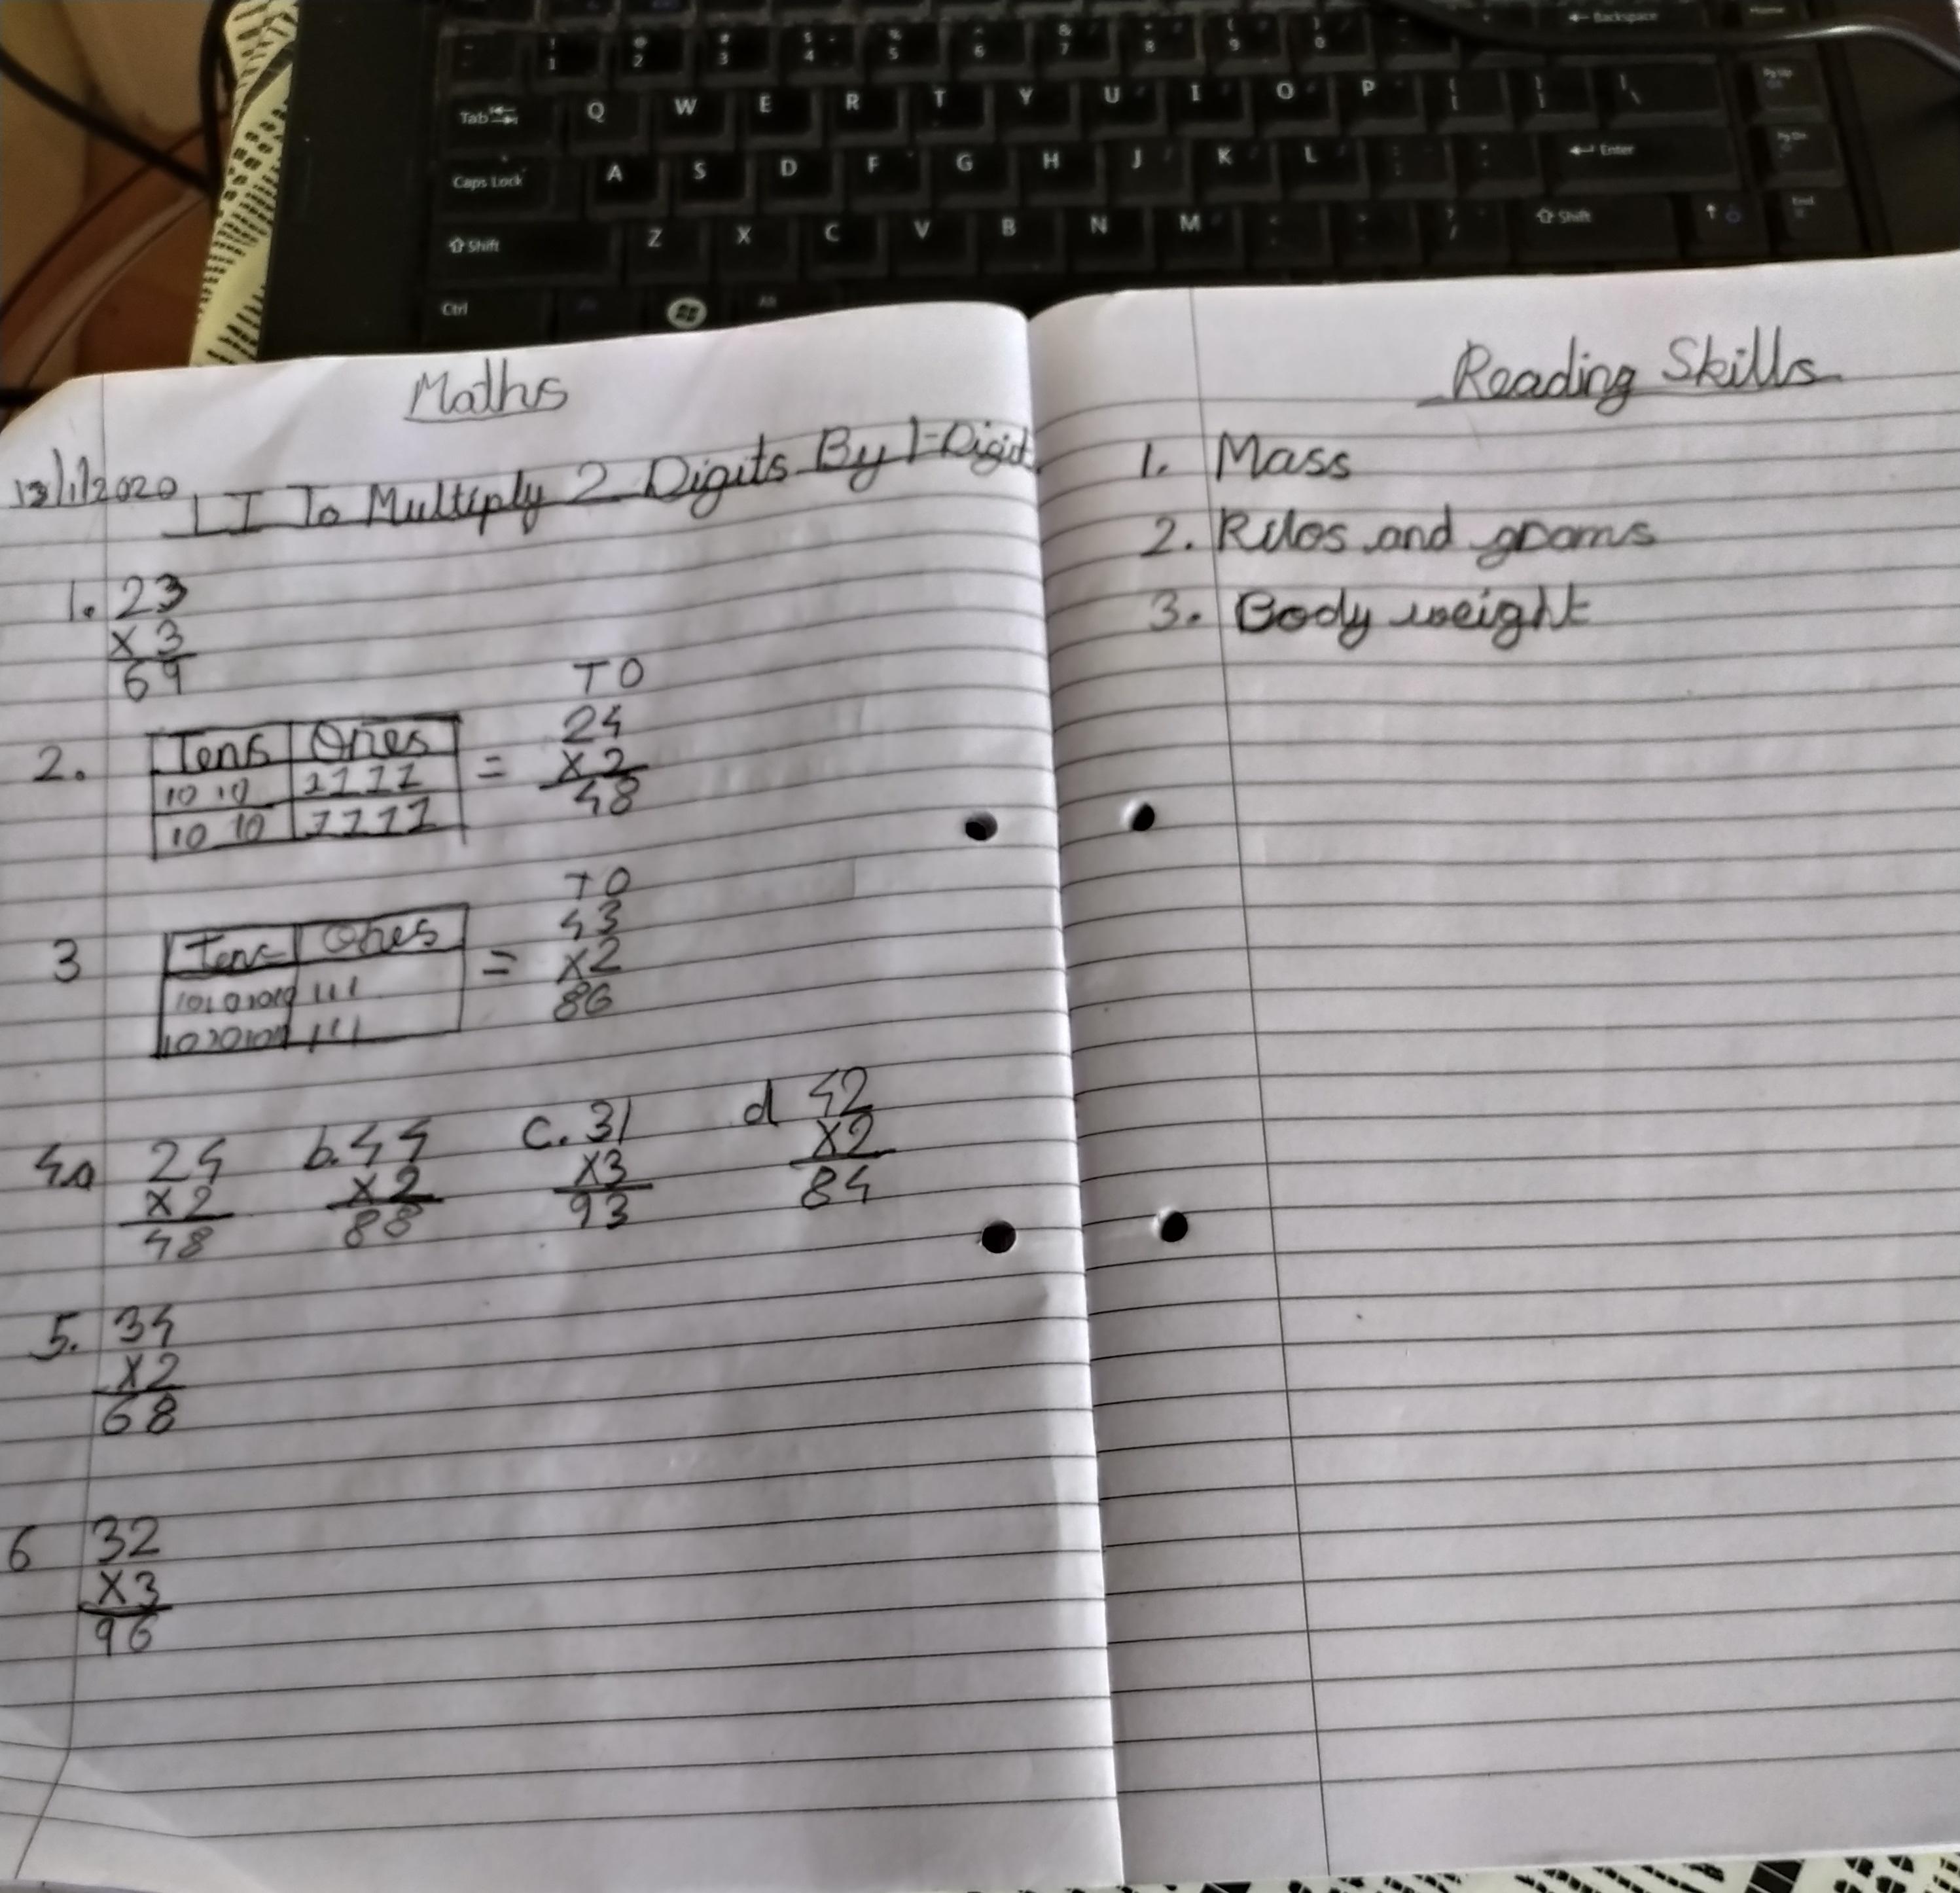 1 2 3 4 5 6 7 8 9 0 Backspace Home
Tab Q W E R T Y U I O P Pg Up
Caps Lock A S D F G H J K L Enter Pg Dn
Shift Z X C V B N M Shift End
Ctrl Alt
Maths
13/1/2020 LI To Multiply 2 Digits By 1-Digit
1. 23
x 3
69
2.
Tens Ones
10 10 1111
10 10 1111
=
TO
24
x 2
48
3
Tens Ones
10101010 111
10101010 111
=
TO
43
x2
86
4.a 24
x 2
48
b. 44
x 2
88
c. 31
x3
93
d 42
x2
84
5. 34
x2
68
6 32
x3
96
Reading Skills
1. Mass
2. Kilos and grams
3. Body weight